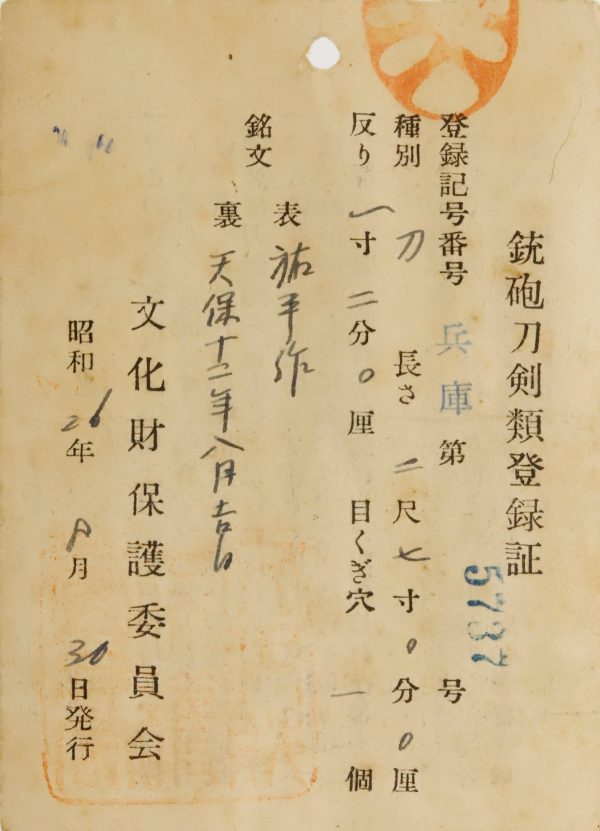 銃砲刀剣類登録証
登録記号番号 兵庫 第 5737 号
種別 刀 長さ 二尺七寸0分0厘
反り 一寸二分0厘 目くぎ穴 一個
銘文 表 祐平作
裏 天保十二年八月吉日
文化財保護委員会
昭和26年8月30日発行